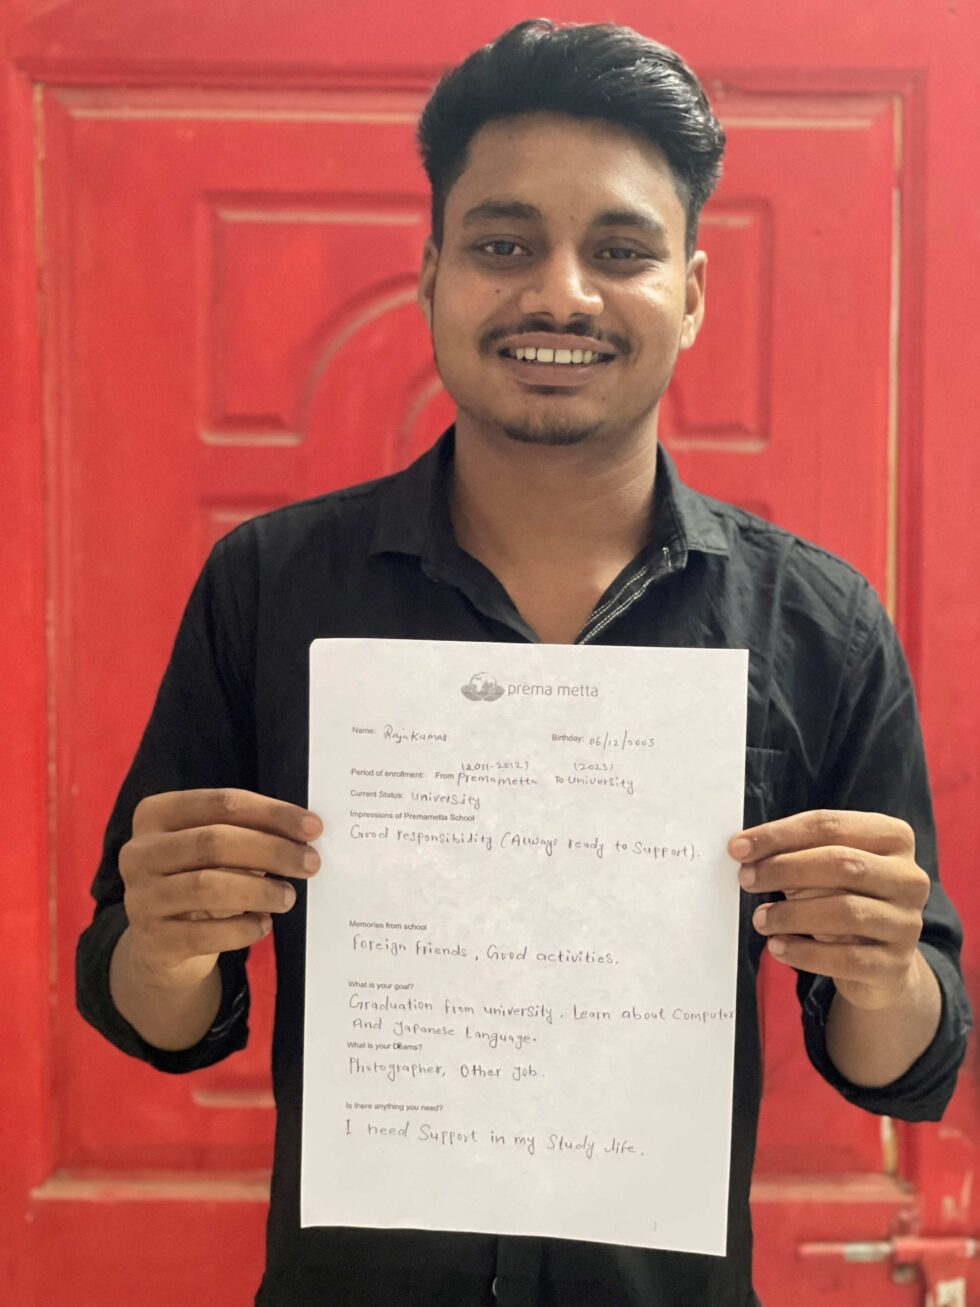 prema metta
Name: Rajakumar Birthday: 06/12/2005
(2011-2012) (2023)
Period of enrollment: From Premametta To University
Current Status: University
Impressions of Premametta School
Good responsibility (Always ready to Support).
Memories from school
Foreign friends, Good activities.
What is your goal?
Graduation from university, Learn about Computer
And Japanese Language.
What is your Dreams?
Photographer, Other Job.
Is there anything you need?
I need Support in my Study life.